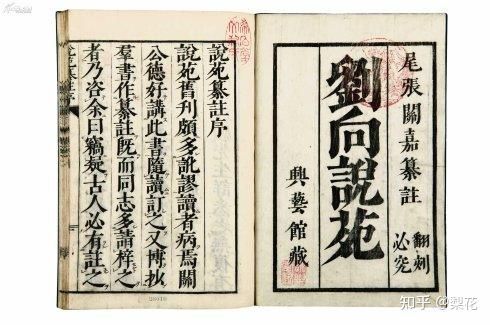 尾張關嘉纂註
翻刻
必究
劉向說苑
興藝館藏
說苑纂註序
說苑舊刊頗多訛謬讀者病焉關
公德好講此書隨讀訂之又博抄
羣書作纂註既而同志多請梓之
者乃咨余曰竊疑古人必有註之
知乎 @梨花